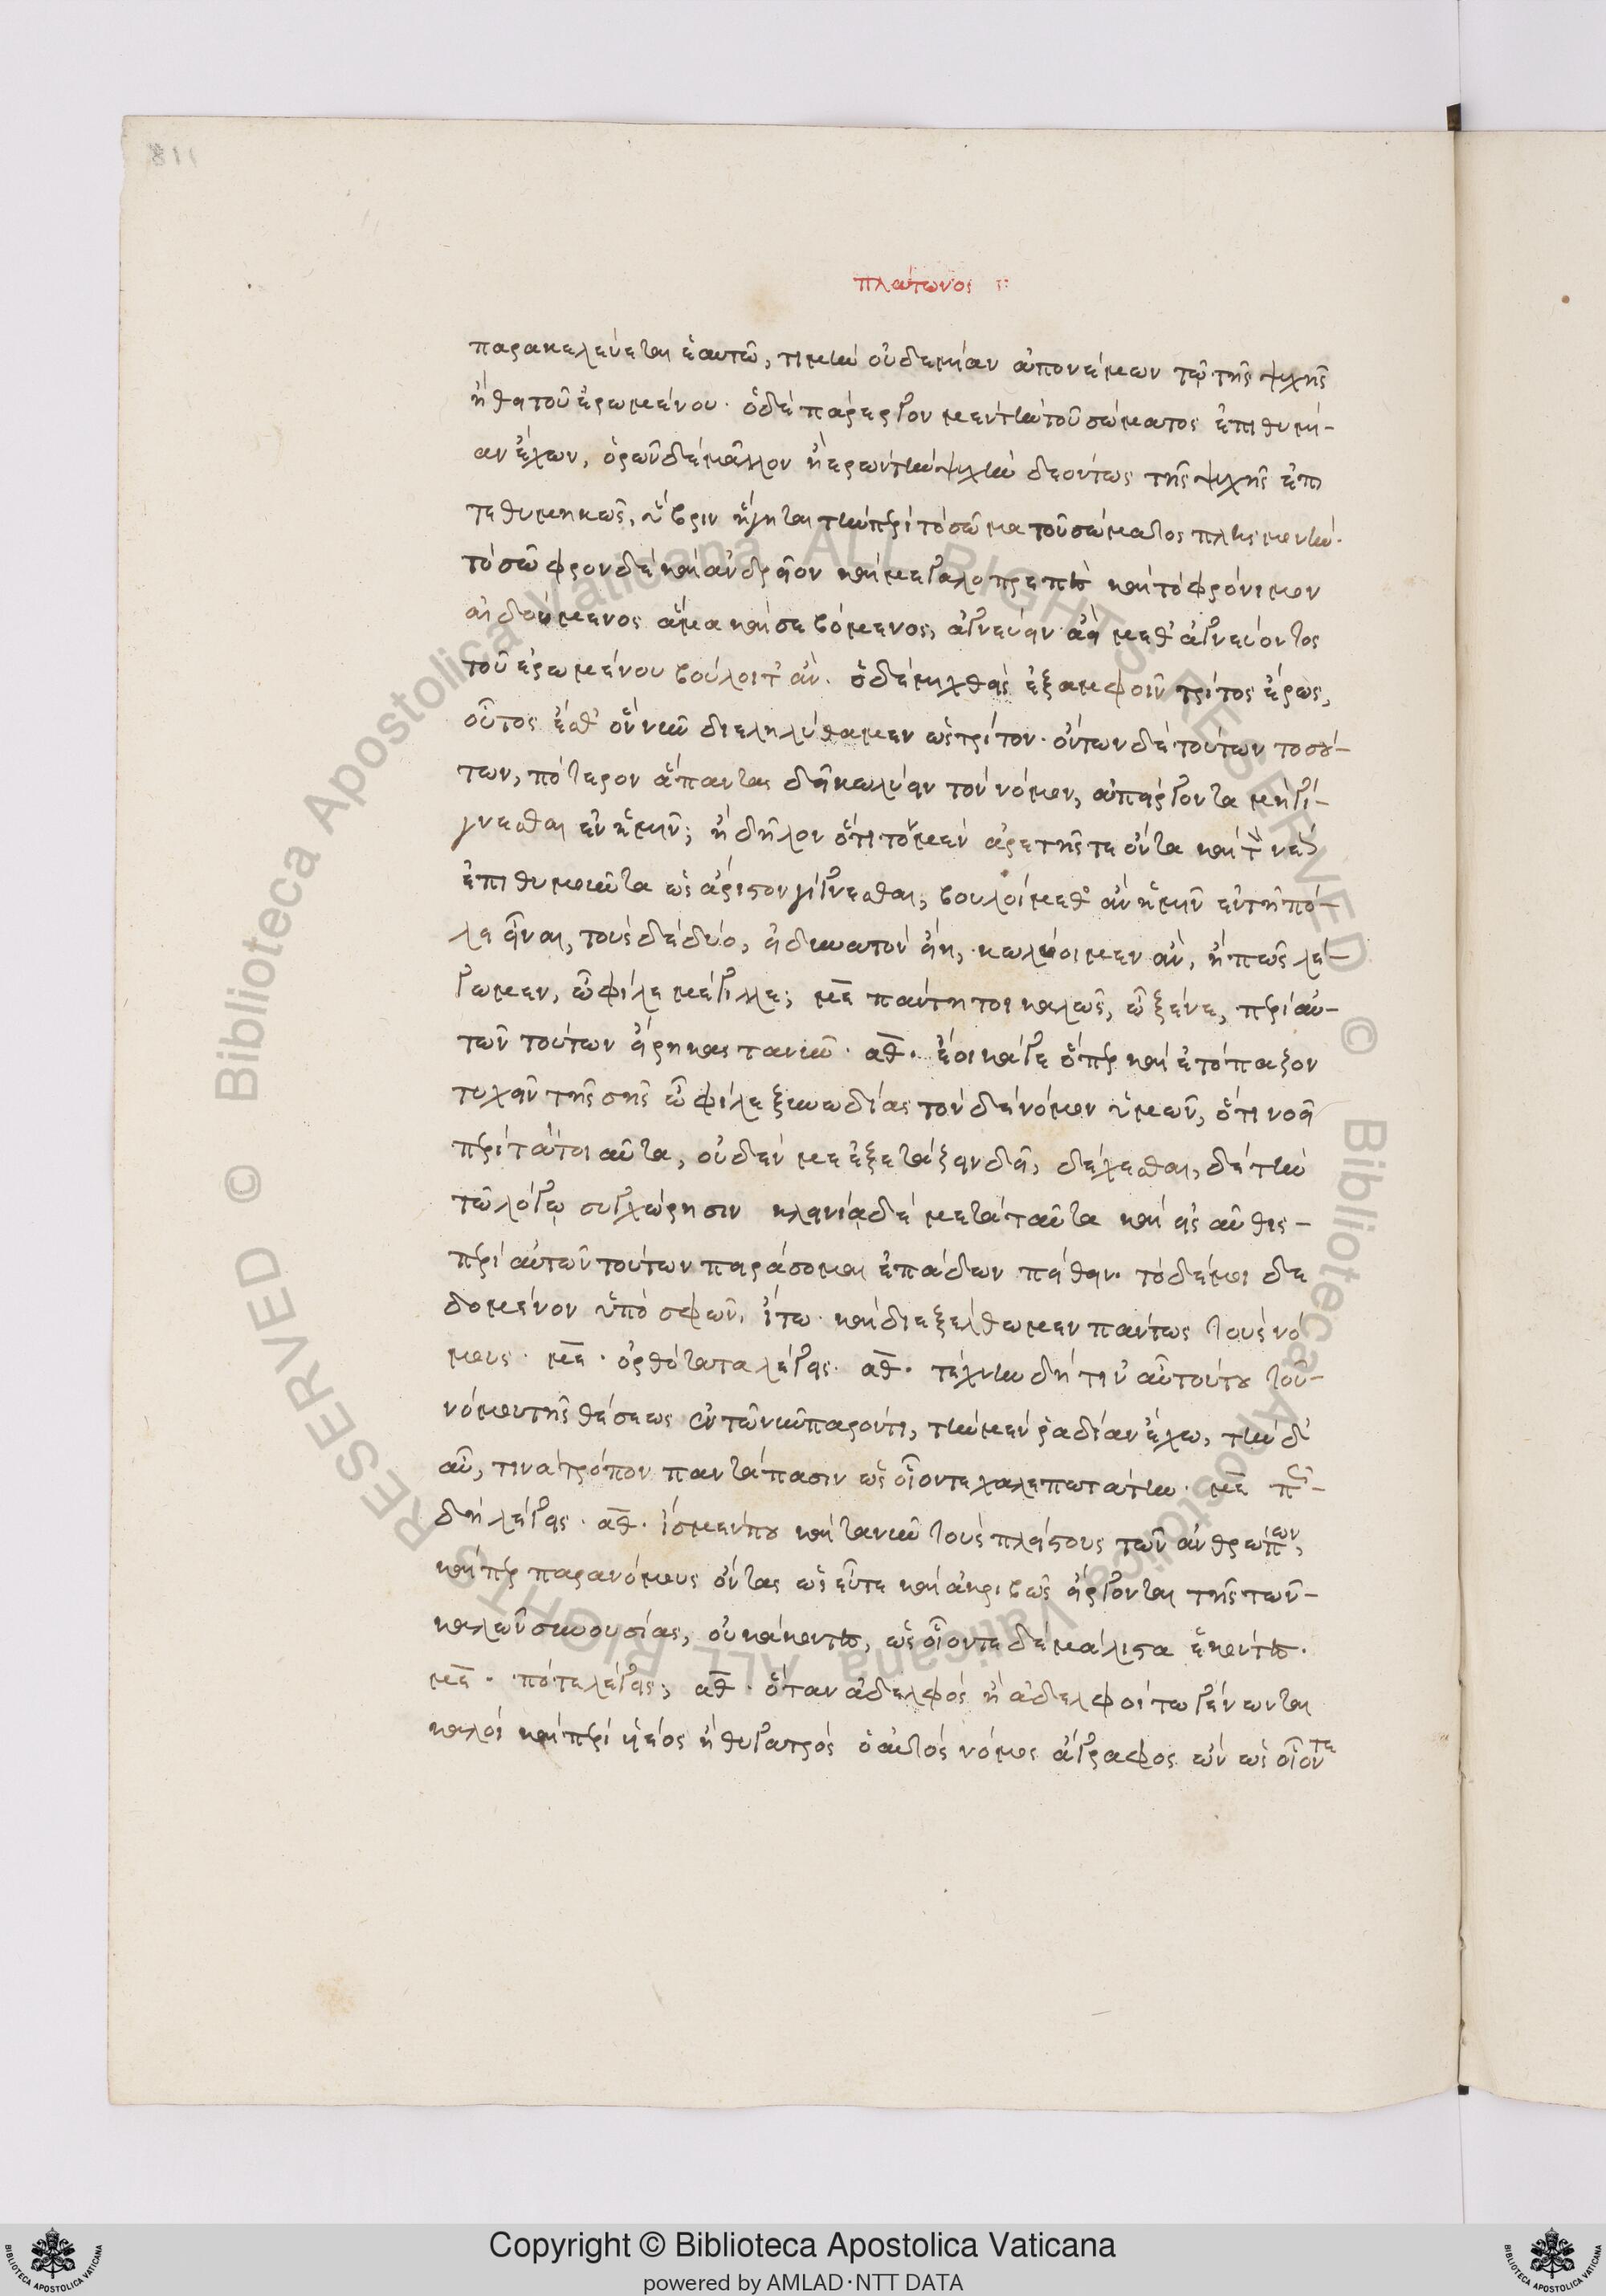 811
πλάτωνος :·
παρακελεύεται ἑαυτῶ, τιμὴν οὐδεμίαν ἀπονέμων τῷ τῆς ψυχῆς
ἤθει τοῦ ἐρωμένου. ὁ δὲ πάρεργον μὲν τὴν τοῦ σώματος ἐπιθυμί-
αν ἔχων, ὁρῶν δὲ μᾶλλον ἢ ἐρῶν τὴν ψυχὴν δεόντως τῆς ψυχῆς ἐπι
τεθυμηκὼς, ὕβριν ἥγηται τὴν περὶ τὸ σῶμα τοῦ σώματος πλησμονήν.
τὸ σῶφρον δὲ καὶ ἀνδρεῖον καὶ μεγαλοπρεπὲς καὶ τὸ φρόνιμον
αἰδούμενος ἅμα καὶ σεβόμενος, ἁγνεύειν ἀεὶ μεθ' ἁγνεύοντος
τοῦ ἐρωμένου βούλοιτ' ἄν. ὁ δὲ μιχθεὶς ἐξ ἀμφοῖν τρίτος ἔρως,
οὗτος ἔσθ' ὃν νῦν διεληλύθαμεν ὡς τρίτον. ὄντων δὲ τούτων τοσού-
των, πότερον ἅπαντας δεῖ κωλύειν τὸν νόμον, ἀπείργοντα μὴ γί-
γνεσθαι ἐν ἡμῖν; ἢ δῆλον ὅτι τὸ μὲν ἀρετῆς τε ὄντα καὶ τὸν νέον
ἐπιθυμοῦντα ὡς ἄριστον γίγνεσθαι; βουλοίμεθ' ἂν ἡμῖν ἐν τῆ πό-
λει εἶναι, τοὺς δὲ δύο, εἰ δυνατὸν εἴη, κωλύοιμεν ἄν, ἢ πῶς λέ-
γωμεν, ὦ φίλε μέγιλλε; με πάντῃ τοι καλῶς, ὦ ξένε, περὶ αὐ-
τῶν τούτων εἴρηκας τανῦν. αθ. ἔοικά γε ὅπερ καὶ ἐτόπαζον
τυχεῖν τῆς σῆς ὦ φίλε ξυνωδίας τὸν δὲ νόμον ὑμῶν, ὅτι νοεῖ
περὶ τὰ τοιαῦτα, οὐδέν με ἐξετάζειν δεῖ, δέχεσθαι, δὲ τὴν
τῶ λόγῳ συγχώρησιν κλεινίᾳ δὲ μετὰ ταῦτα καὶ εἰς αὖθις-
περὶ αὐτῶν τούτων πειράσομαι ἐπᾴδων πείθειν. τὸ δέ μοι δε
δομένον ὑπὸ σφῶν, ἴτω καὶ διεξέλθωμεν πάντως τοὺς νό
μους. με. ὀρθότατα λέγεις. αθ. τέχνην δή τιν' αὖ τούτου τοῦ-
νόμου τῆς θέσεως ἐν τῶ νῦν παρόντι, τὴν μὲν ῥᾳδίαν ἔχω, τὴν δ'
αὖ, τινὰ τρόπον παντάπασιν ὡς οἷόν τε χαλεπωτάτην. με πῶς-
δὴ λέγεις. αθ. ἴσμέν που καὶ τανῦν τοὺς πλείστους τῶν ἀνθρώπων,
καίπερ παρανόμους ὄντας ὡς εὖ τε καὶ ἀκριβῶς εἴργονται τῆς τῶν-
καλῶν συνουσίας, οὐκ ἄκοντες, ὡς οἷόν τε δὲ μάλιστα ἑκόντες.
με. πότε λέγεις; αθ. ὅταν ἀδελφὸς ἢ ἀδελφοί τω γένωνται
καλοί καὶ περὶ ὑέος ἢ θυγατρός ὁ αὐτὸς νόμος ἄγραφος ὢν ὡς οἷόν τε